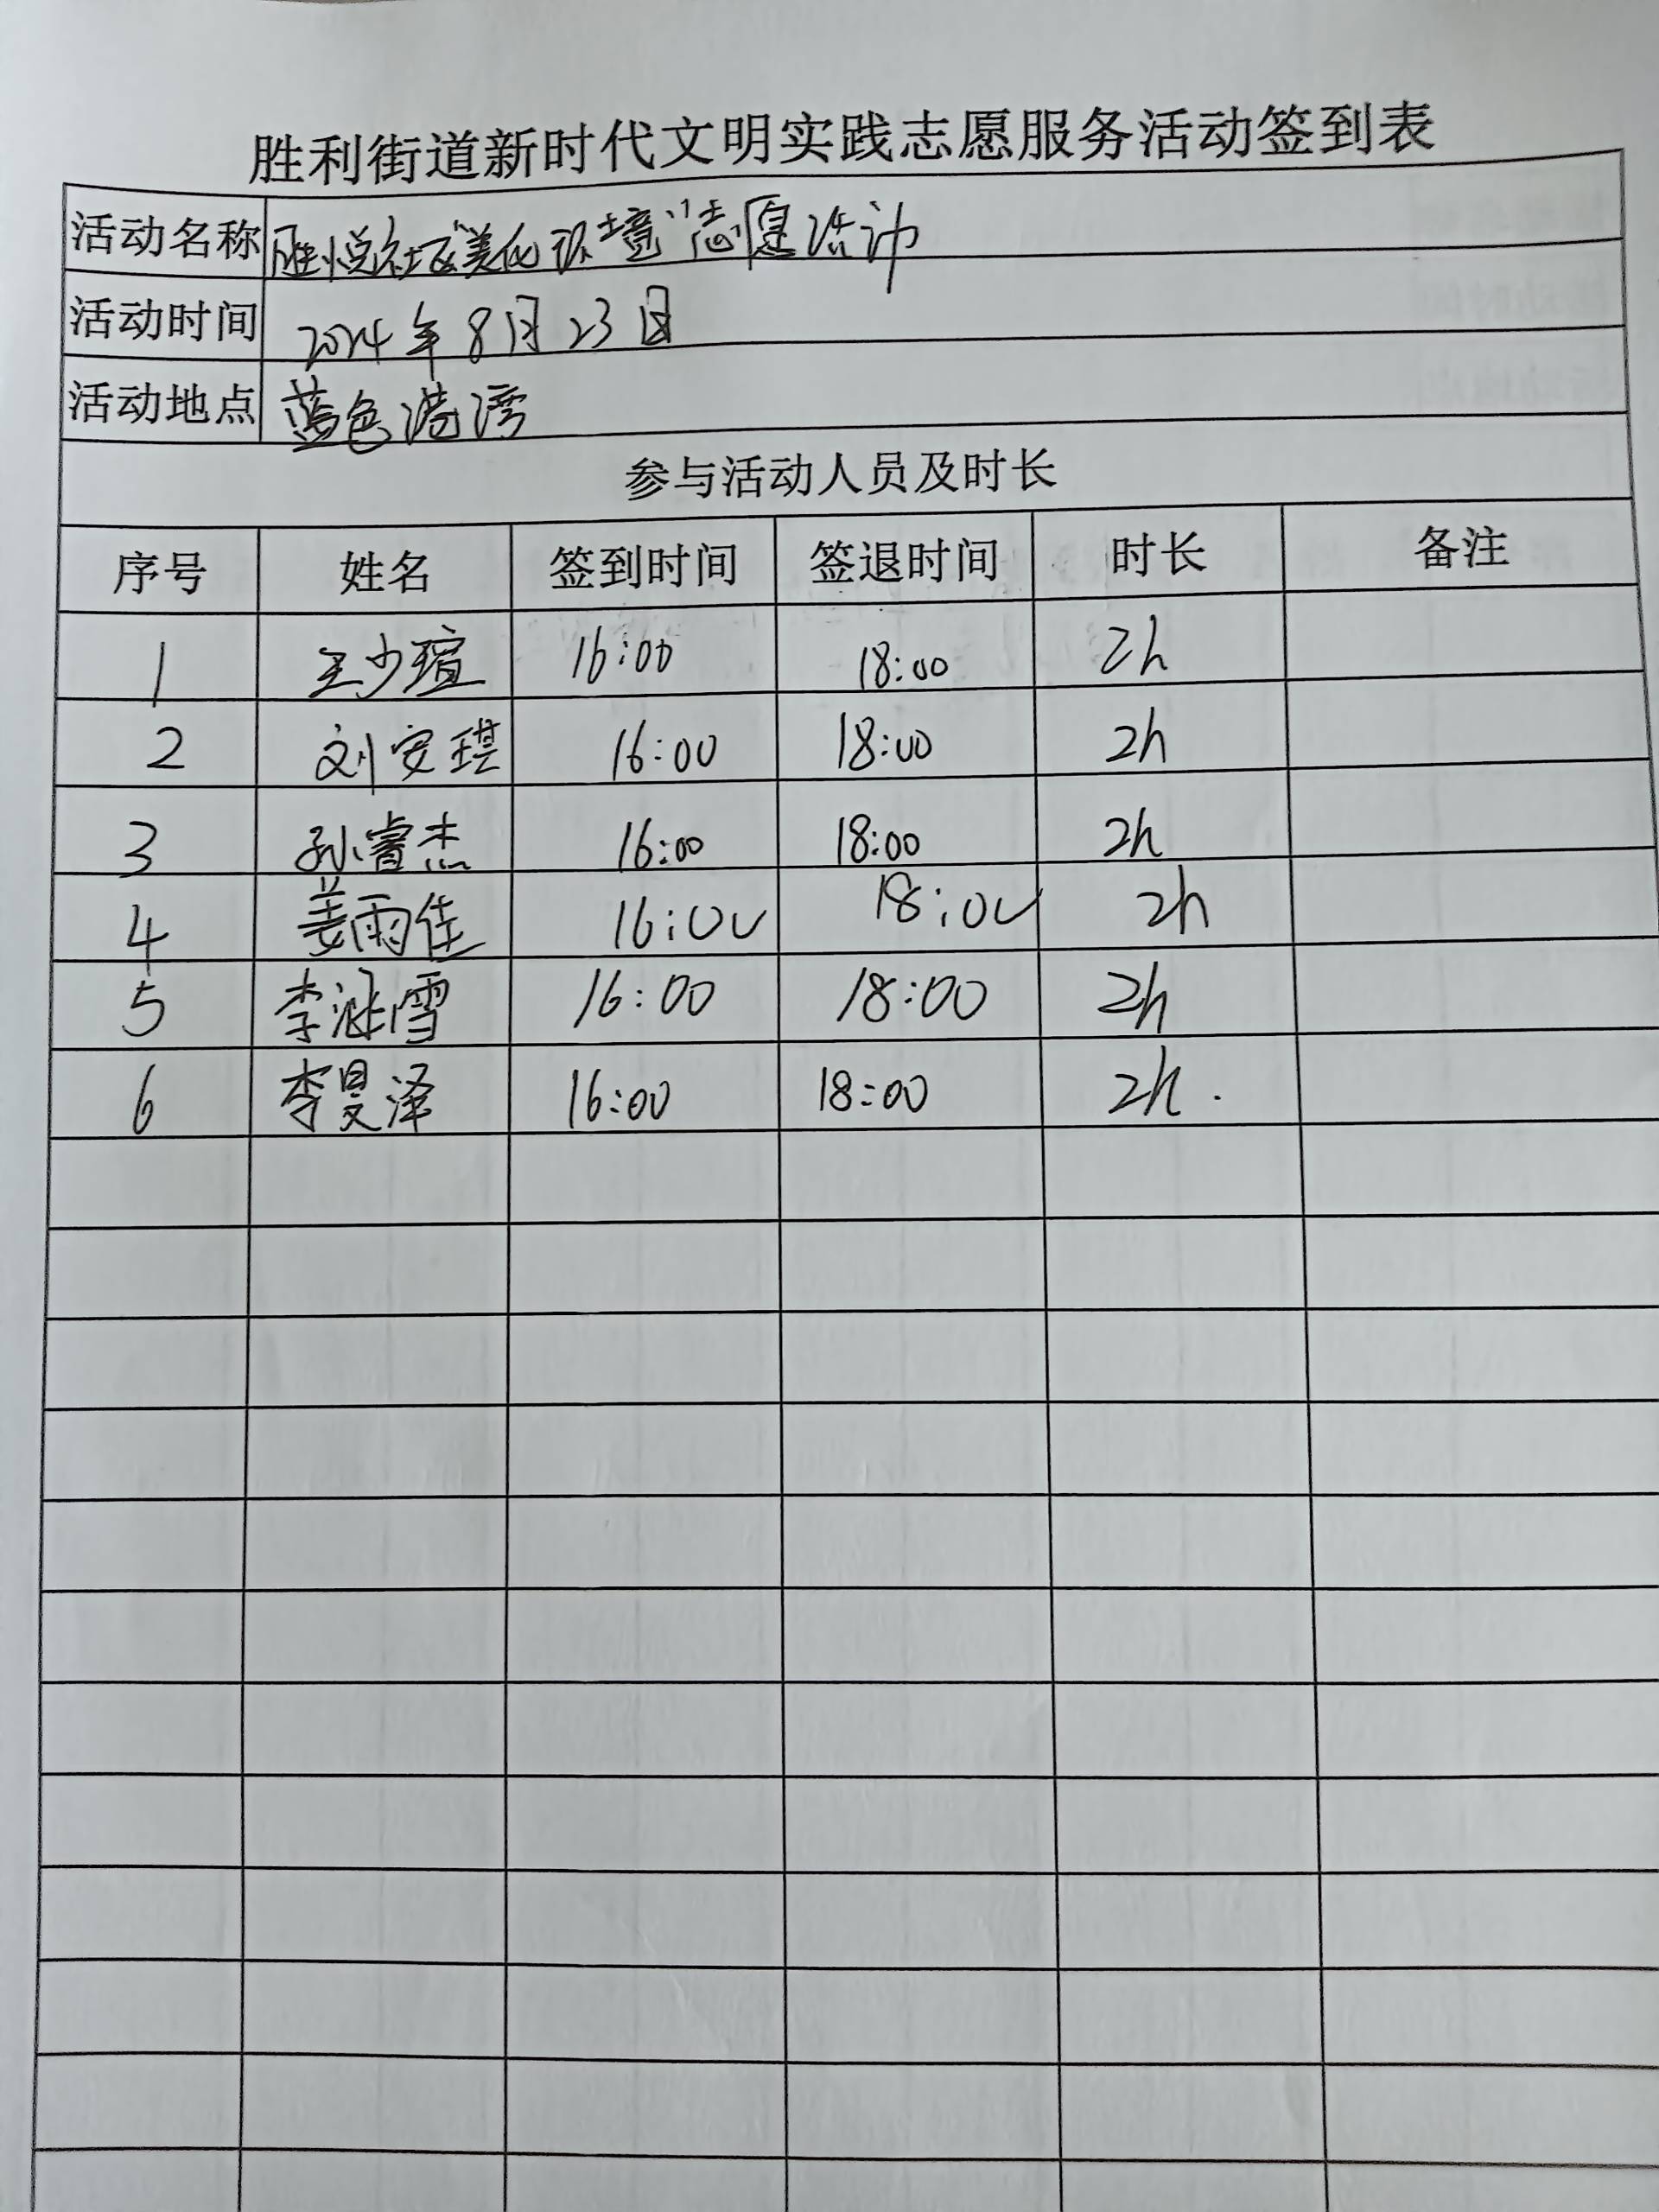 胜利街道新时代文明实践志愿服务活动签到表
活动名称 胜悦社区“美化环境”志愿活动
活动时间 2024年8月23日
活动地点 蓝色港湾
参与活动人员及时长
序号 姓名 签到时间 签退时间 时长 备注
1 王少瑄 16:00 18:00 2h
2 刘安琪 16:00 18:00 2h
3 孙睿杰 16:00 18:00 2h
4 姜雨佳 16:00 18:00 2h
5 李涨雪 16:00 18:00 2h
6 李昊泽 16:00 18:00 2h.